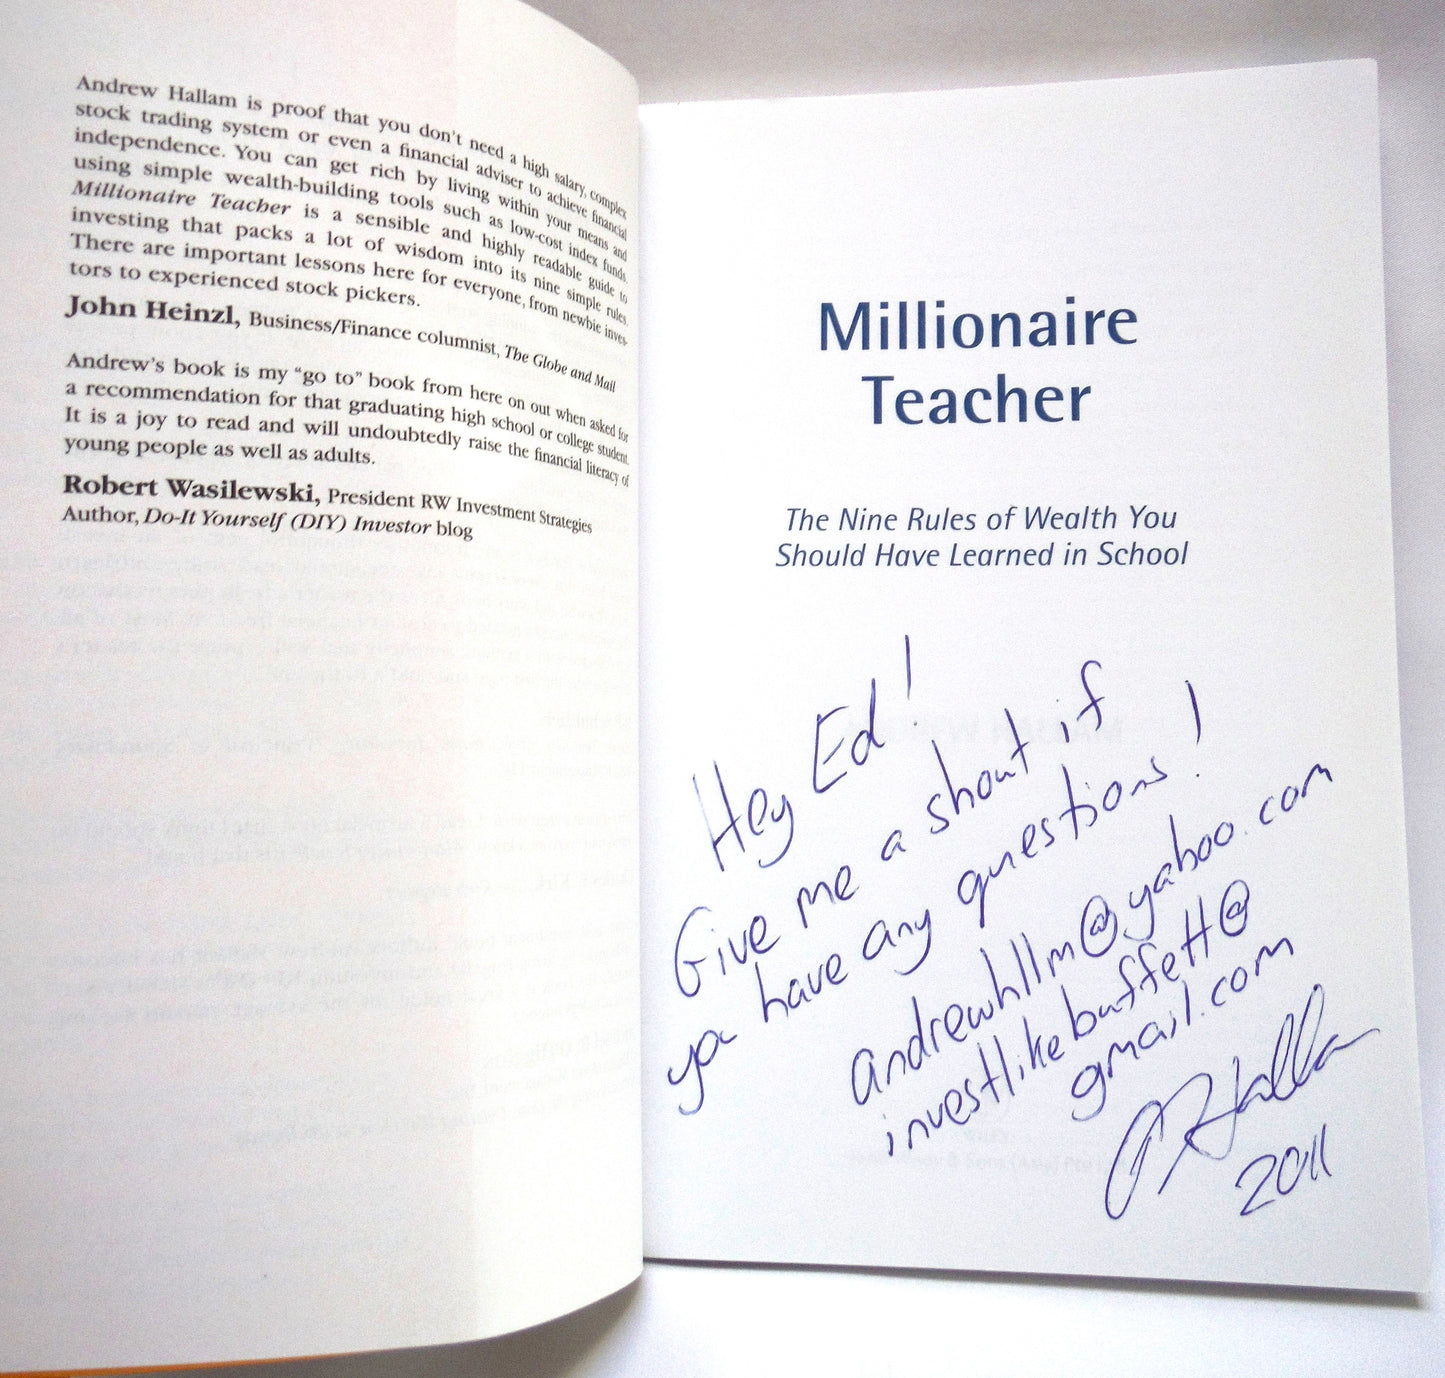 Andrew Hallam is proof that you don't need a high salary, complex
stock trading system or even a financial adviser to achieve financial
independence. You can get rich by living within your means and
using simple wealth-building tools such as low-cost index funds.
Millionaire Teacher is a sensible and highly readable guide to
investing that packs a lot of wisdom into its nine simple rules.
There are important lessons here for everyone, from newbie inves-
tors to experienced stock pickers.
John Heinzl, Business/Finance columnist, The Globe and Mail
Andrew's book is my “go to” book from here on out when asked for
a recommendation for that graduating high school or college student.
It is a joy to read and will undoubtedly raise the financial literacy of
young people as well as adults.
Robert Wasilewski, President RW Investment Strategies
Author, Do-It Yourself (DIY) Investor blog
Millionaire
Teacher
The Nine Rules of Wealth You
Should Have Learned in School
Hey Ed!
Give me a shout if
you have any questions!
andrewhllm@yahoo.com
investlikebuffett@
gmail.com
A Hallam
2011